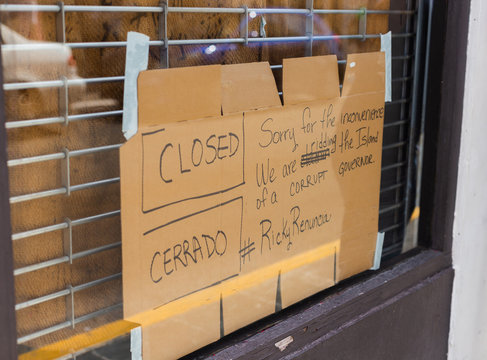 CLOSED
CERRADO
Sorry for the inconvenience
We are ridding the Island
of a CORRUPT GOVERNOR.
#RickyRenuncia